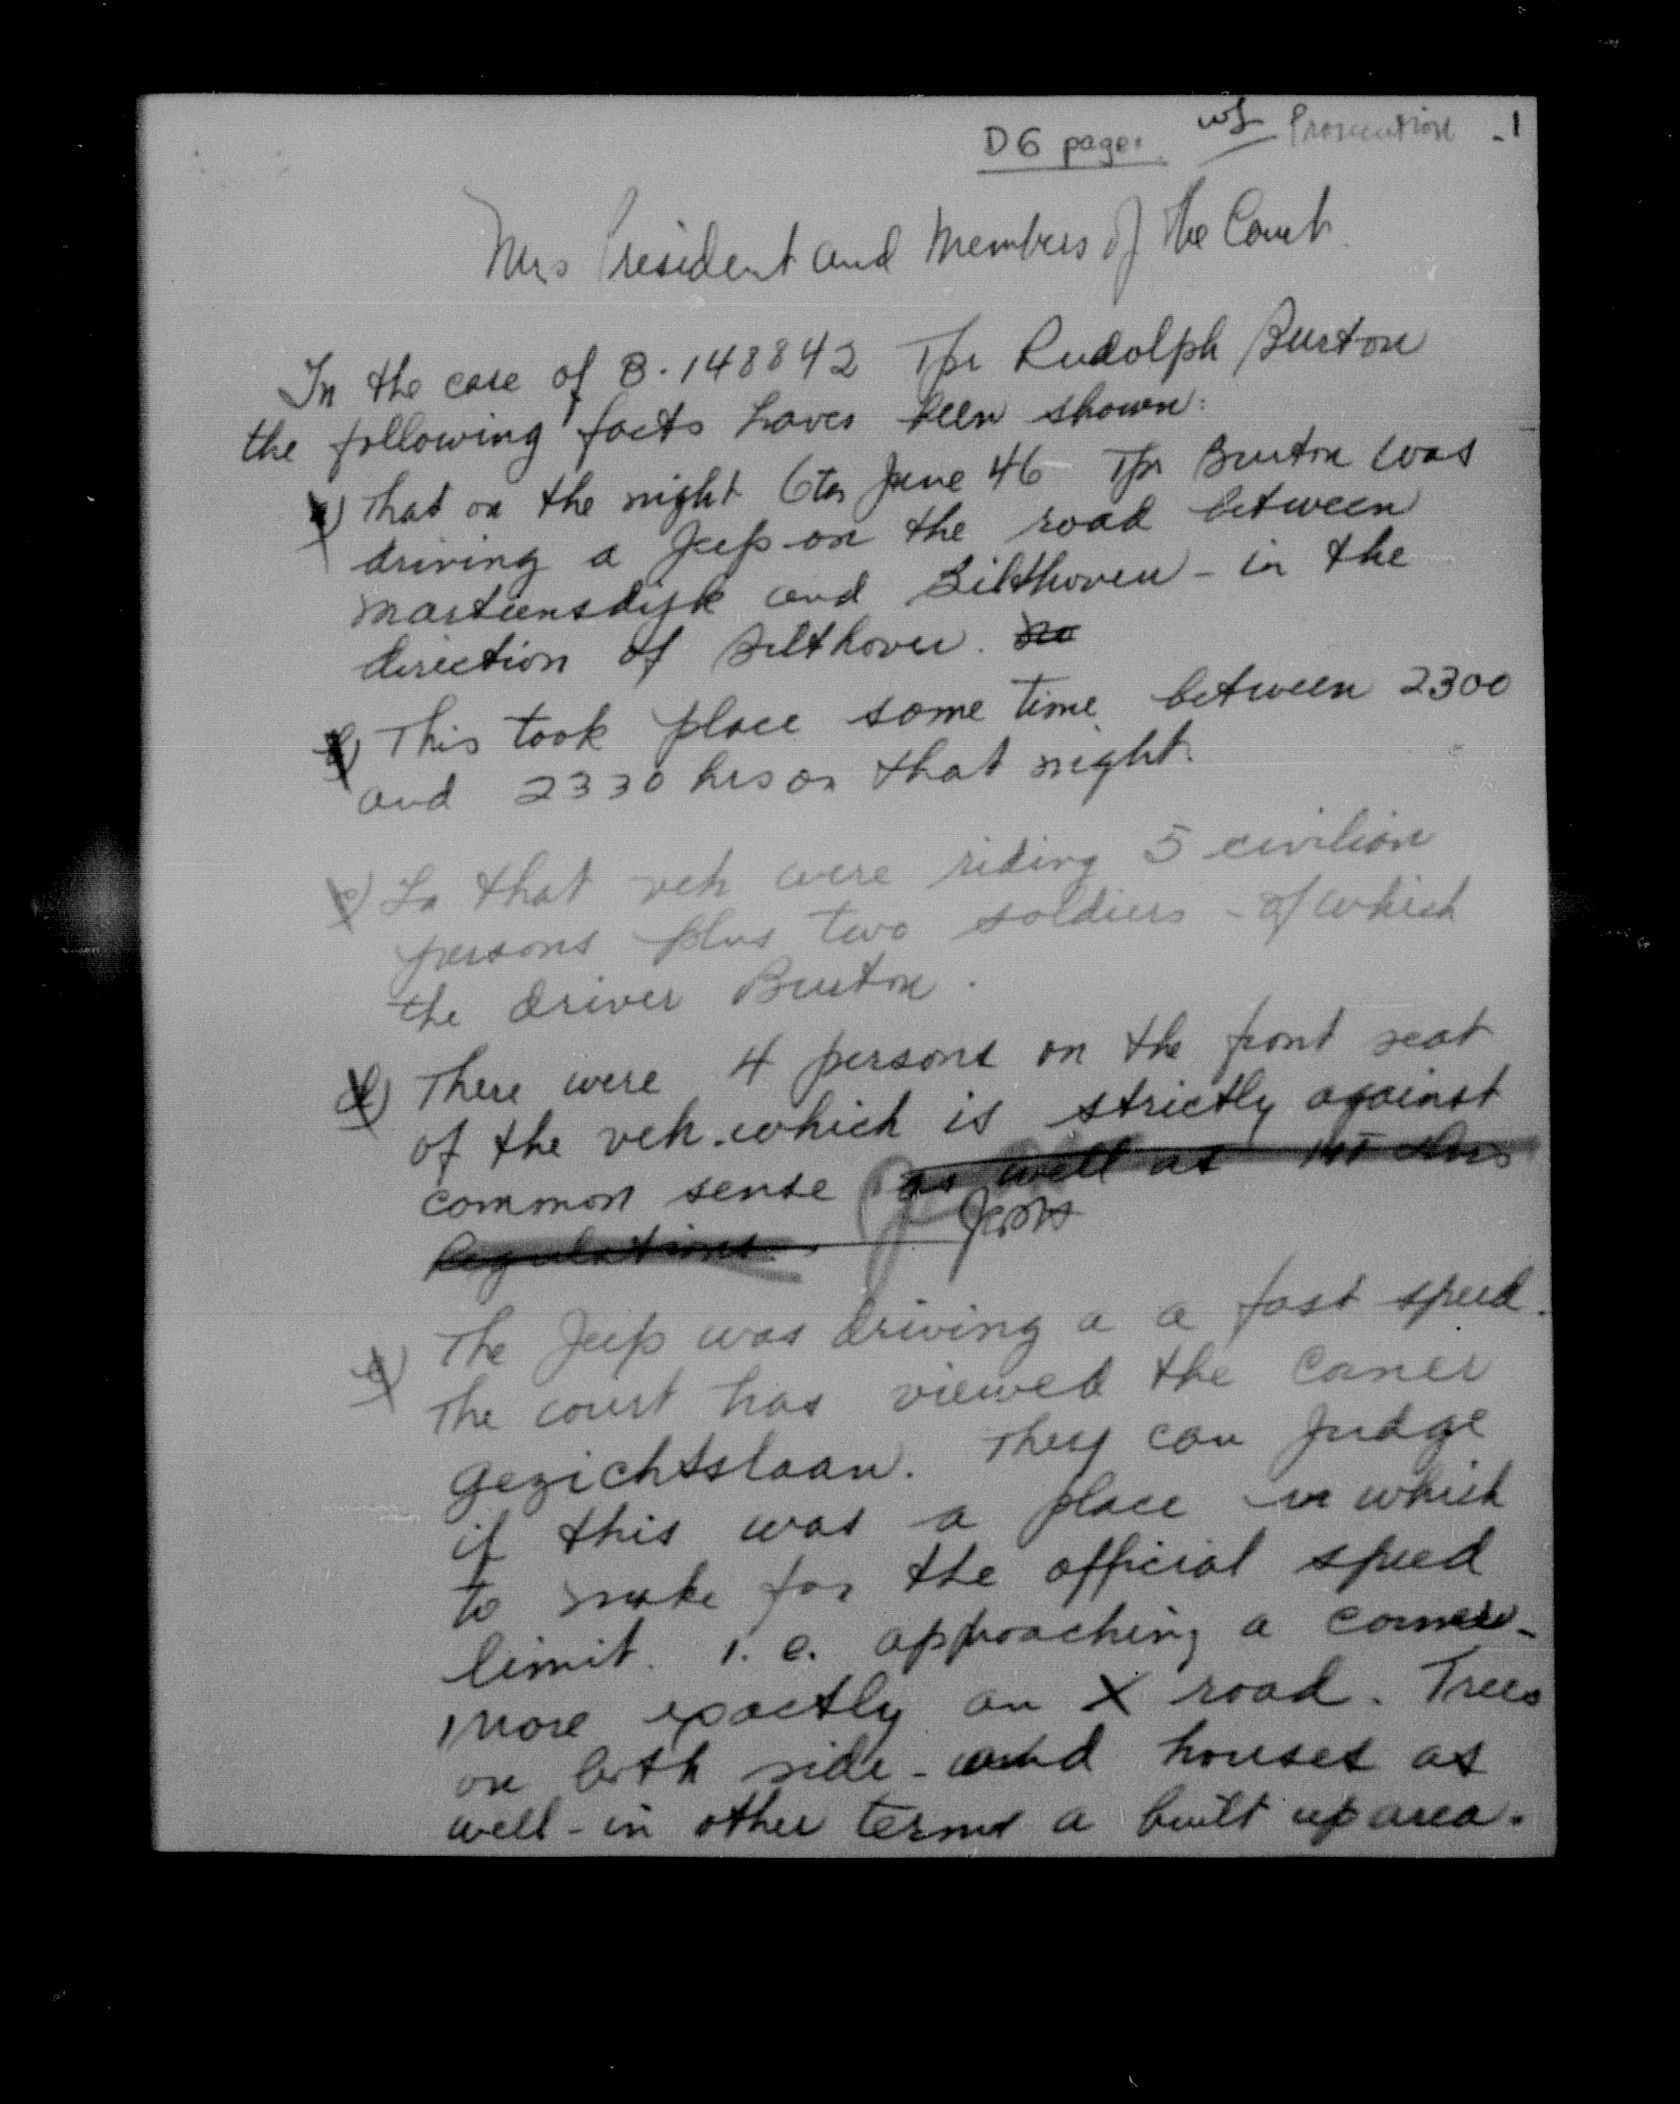 D6 pages Prosecution -1
Mrs President and Members of the Court
In the case of B.148842 Tpr Rudolph Burton
the following facts haves been shown:
a) That on the night 6th June 46 Tpr Burton was
driving a Jeep on the road between
Marteensdyk and Bilthoven - in the
direction of Bilthoven. no
b) This took place some time between 2300
and 2330 hrs on that night.
c) In that veh were riding 5 civilian
persons plus two soldiers - of which
the driver Burton.
d) There were 4 persons on the front seat
of the veh. which is strictly against
common sense as well as
Regulations.
e) The Jeep was driving a a fast speed.
The court has viewed the corner
Gezichtslaan. They can Judge
if this was a place in which
to make for the official speed
limit. i.e. approaching a corner -
more exactly an X road. Trees
on both side - and houses as
well - in other terms a built up area.